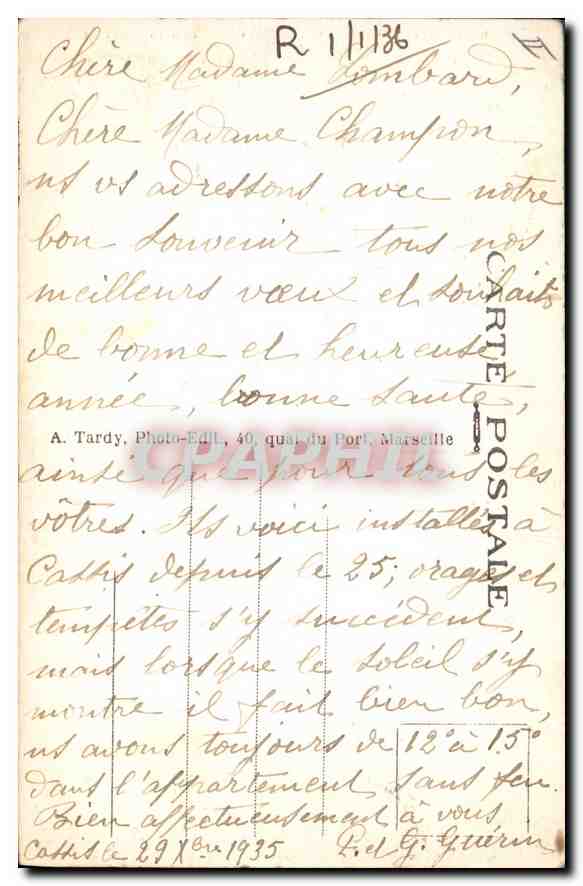 R 1/1/36
Chère Madame Lombard,
Chère Madame Champion,
ns vs adressons avec notre
bon souvenir tous nos
meilleurs vœux et souhaits
de bonne et heureuse
année, bonne santé,
A. Tardy, Photo-Edit., 40, quai du Port, Marseille
CPAPHIL
ainsi que pour tous les
vôtres. Ns voici installés à
Cassis depuis le 25; orages et
tempêtes s'y succèdent,
mais lorsque le soleil s'y
montre il fait bien bon,
ns avons toujours de 12° à 15°
dans l'appartement sans feu.
Bien affectueusement à vous
P. et G. Guérin
Cassis le 29 Xbre 1935
CARTE POSTALE